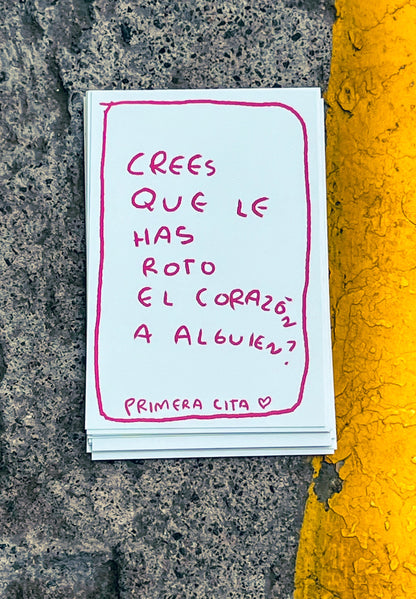 CREES
QUE LE
HAS
ROTO
EL CORAZÓN
A ALGUIEN?
PRIMERA CITA ♡